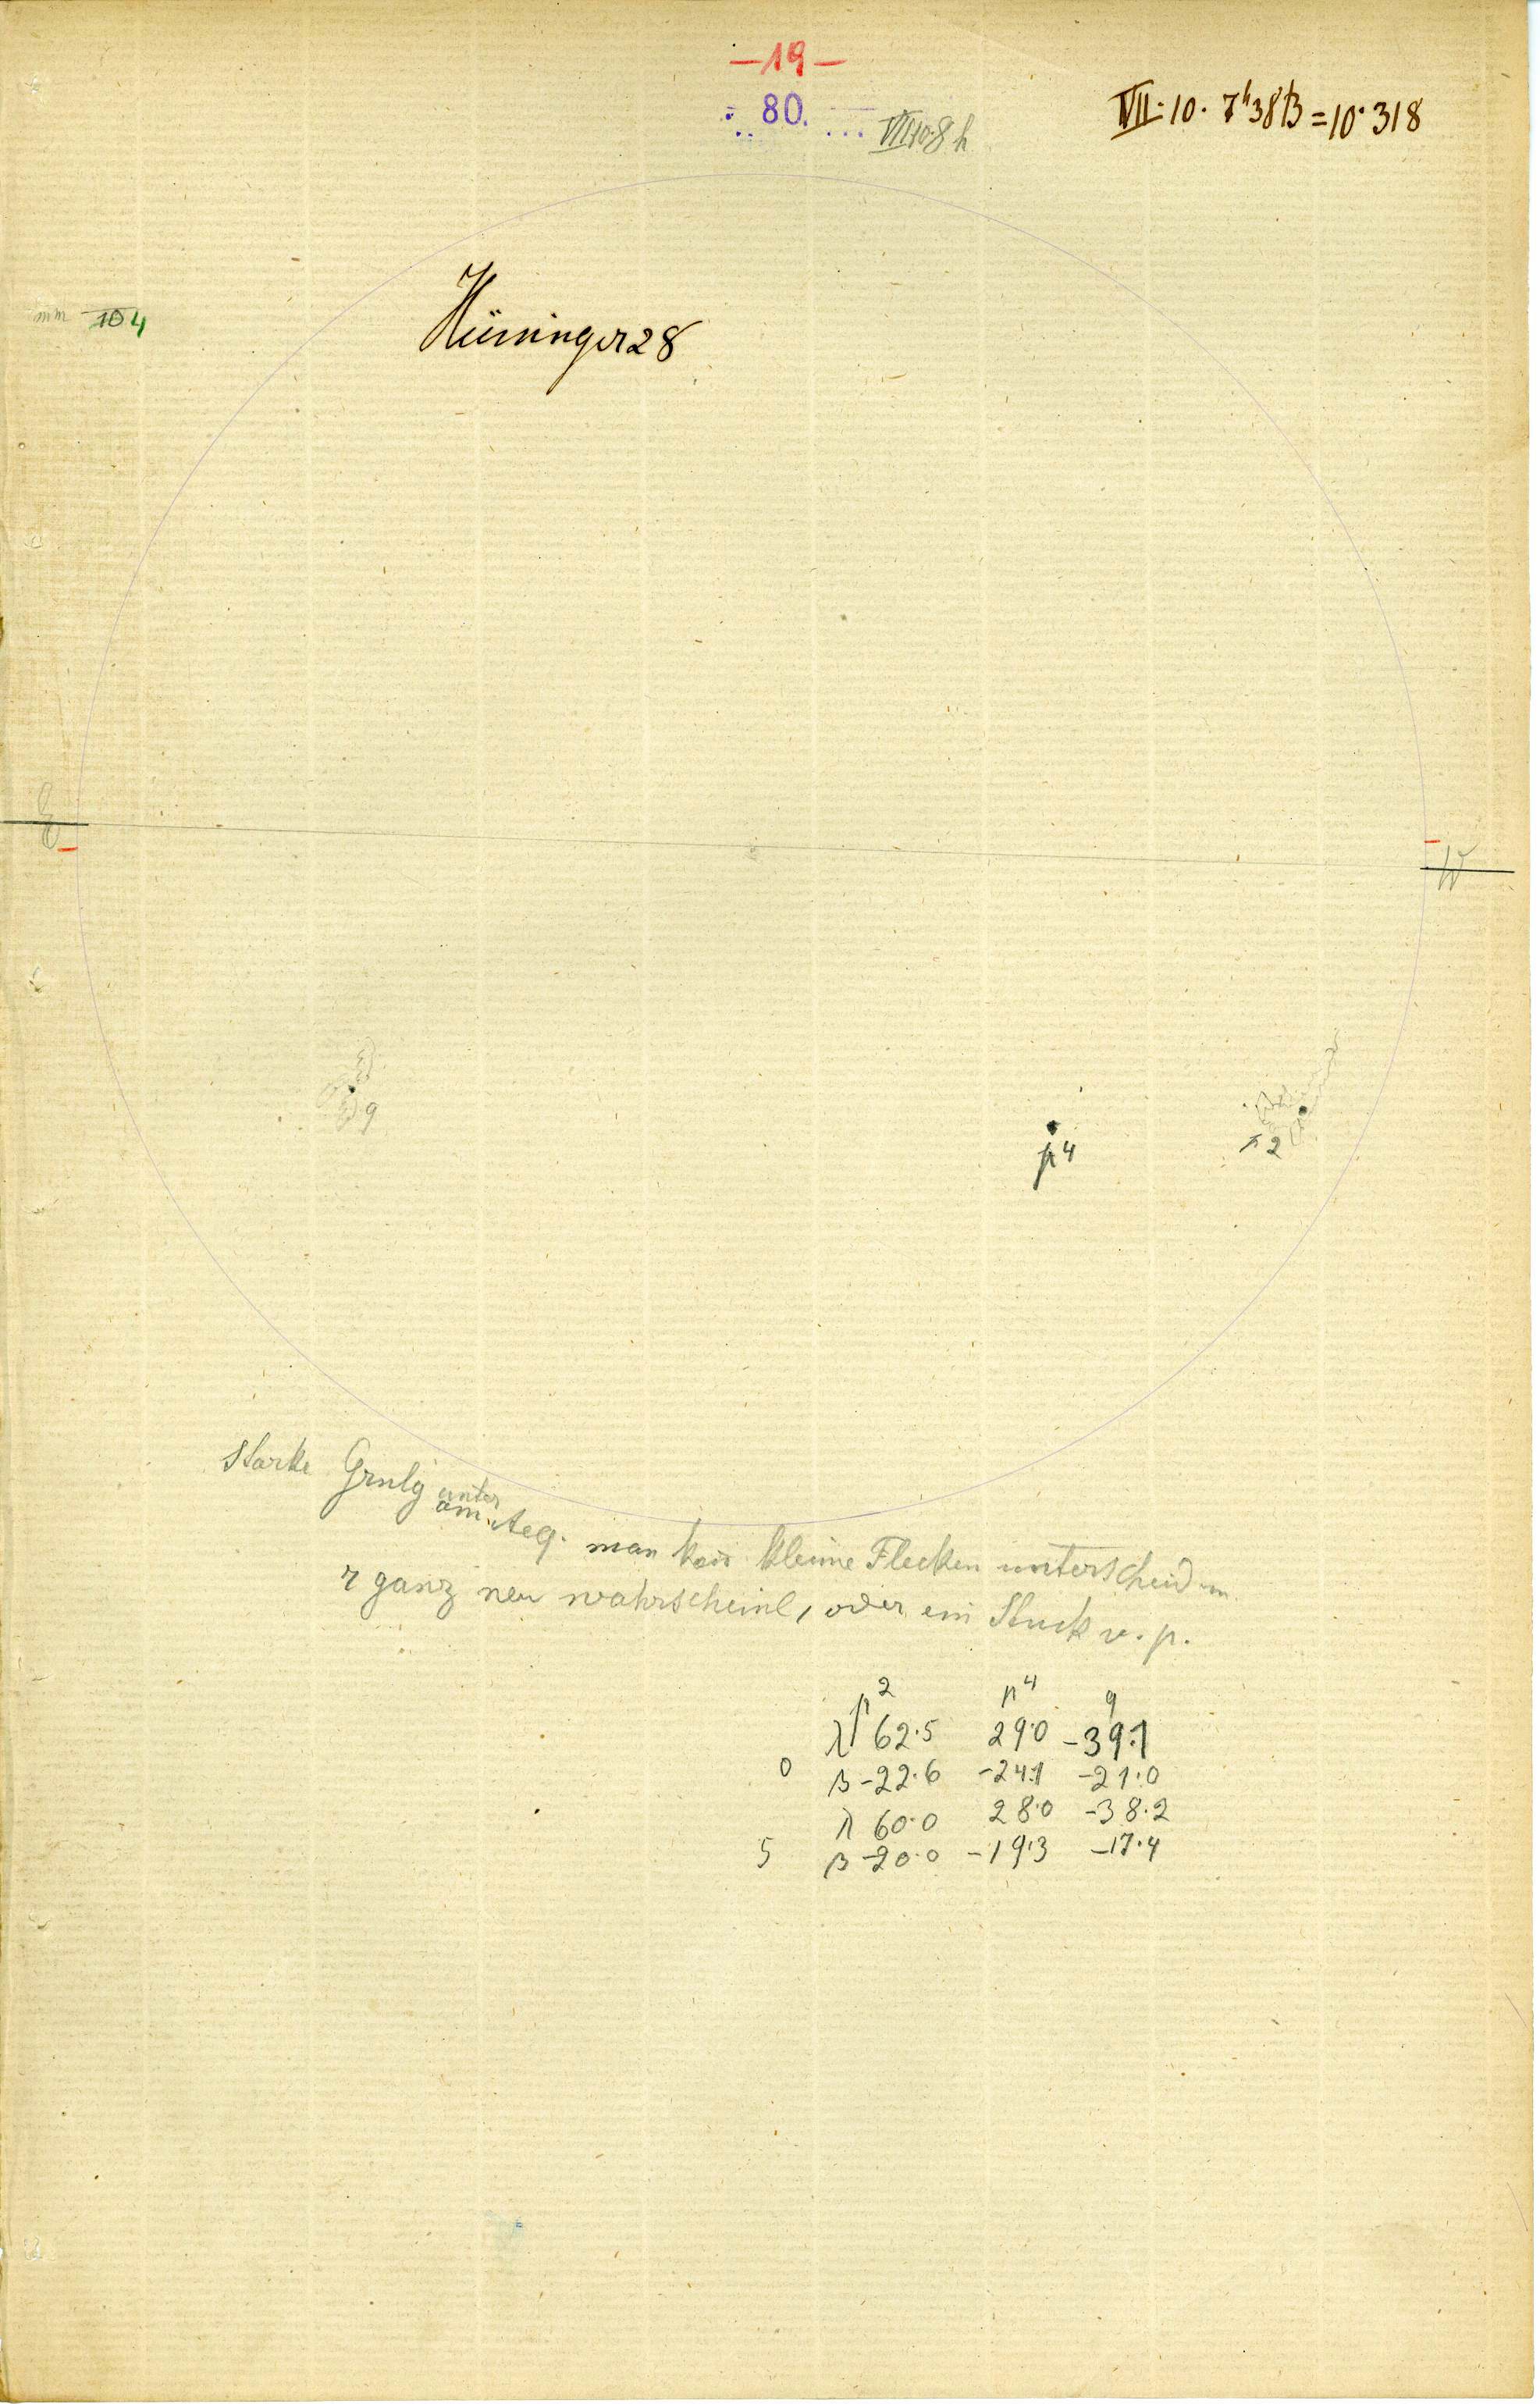 —19—
80.
VII 10. 8 h
VII. 10. 7h38 = 10.318
mm 104
Hüninger 28
E
W
q
p4
p2
Starke Grnlg unter am Aeq. man kan kleine Flecken unterscheiden
r ganz neu wahrscheinl, oder ein Stück v. p.
p2 p4 q
λ 62.5 29.0 -39.1
0 β -22.6 -24.1 -21.0
λ 60.0 28.0 -38.2
5 β -20.0 -19.3 -17.4